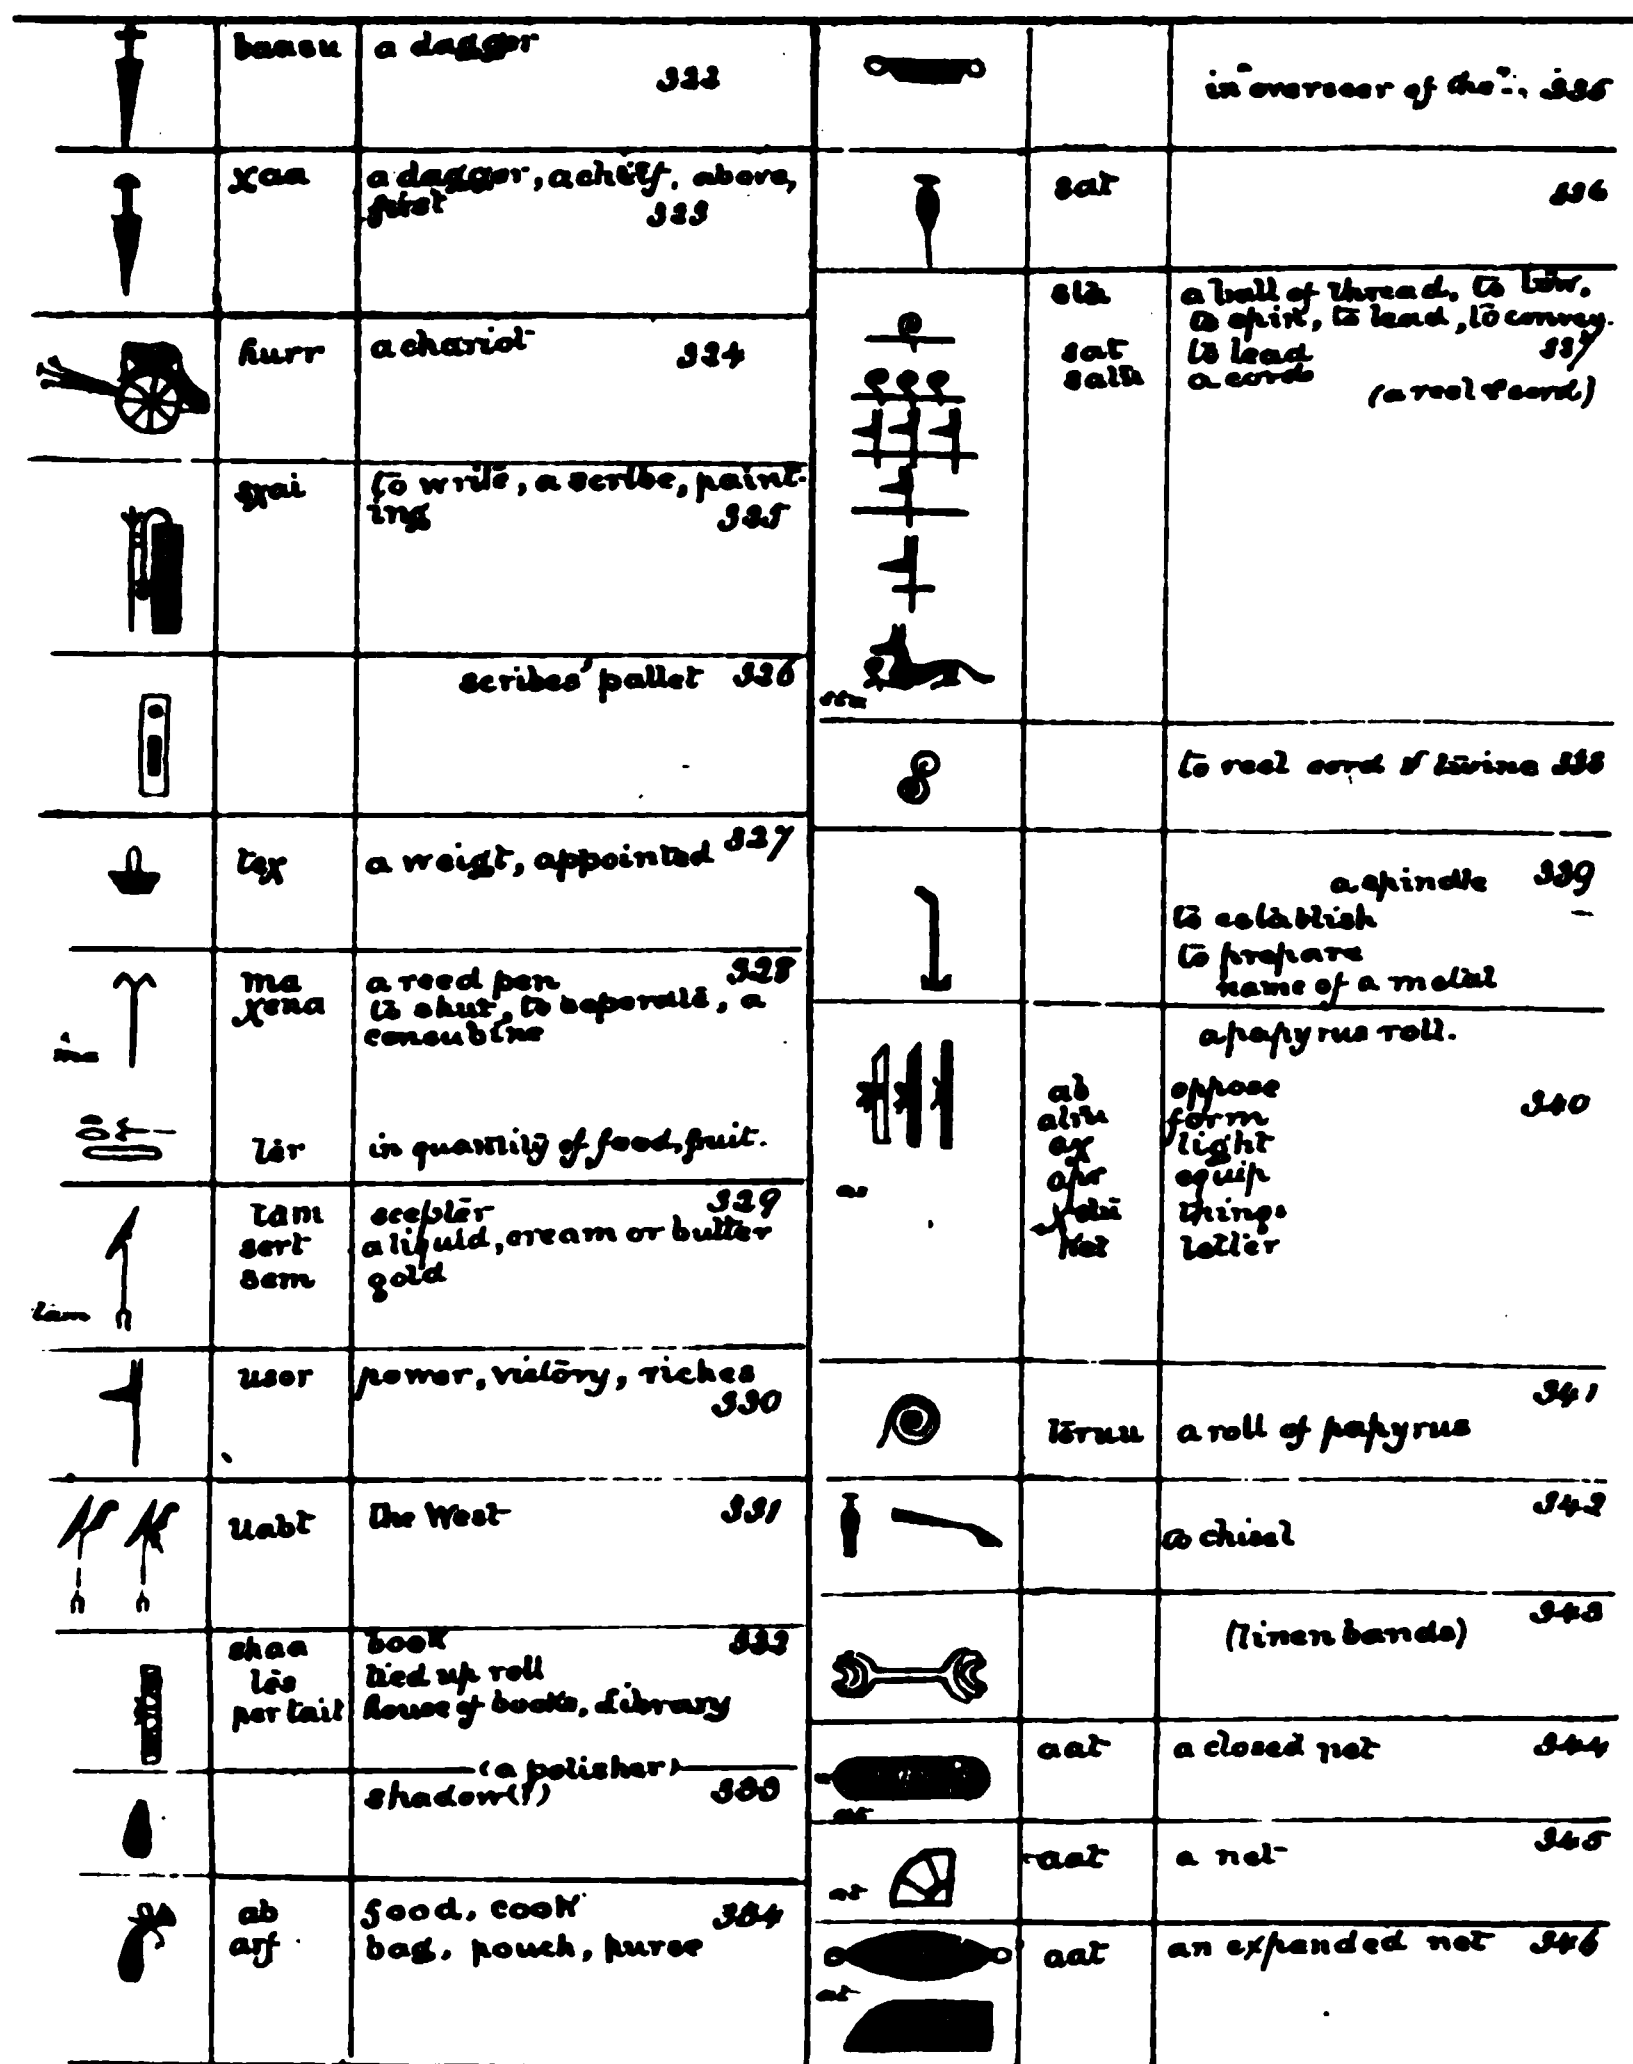 baasu a dagger
322
χaa a dagger, a chief, above,
first 323
hurr a chariot 324
sχai to write, a scribe, paint-
ing 325
scribes' pallet 326
teχ a weigt, appointed 327
ma a reed pen 328
χena to shut, to seperate, a
concubine
ma
ter in quantity of food, fruit.
tam scepter 329
sert a liquid, cream or butter
sem gold
tam
user power, victory, riches
330
Uabt the West 331
shaa book 332
tes tied up roll
per tait house of books, Library
(a polisher)
shadow(?) 333
ab food, cook 334
arf bag, pouch, purse
in "overseer of the". 335
sat 336
sta a ball of thread, to tow,
to spin, to lead, to convey.
sat to lead 337
sath a cord
(a reel & cord)
to reel cord & twine 338
a spindle 339
to establish
to prepare
name of a metal
a papyrus roll.
ab oppose
atru form 340
aχ light
apr equip
as
χetu things
Ket letter
341
teruu a roll of papyrus
342
a chisel
343
(linen bands)
aat a closed net 344
at
aat a net 345
at
aat an expanded net 346
at